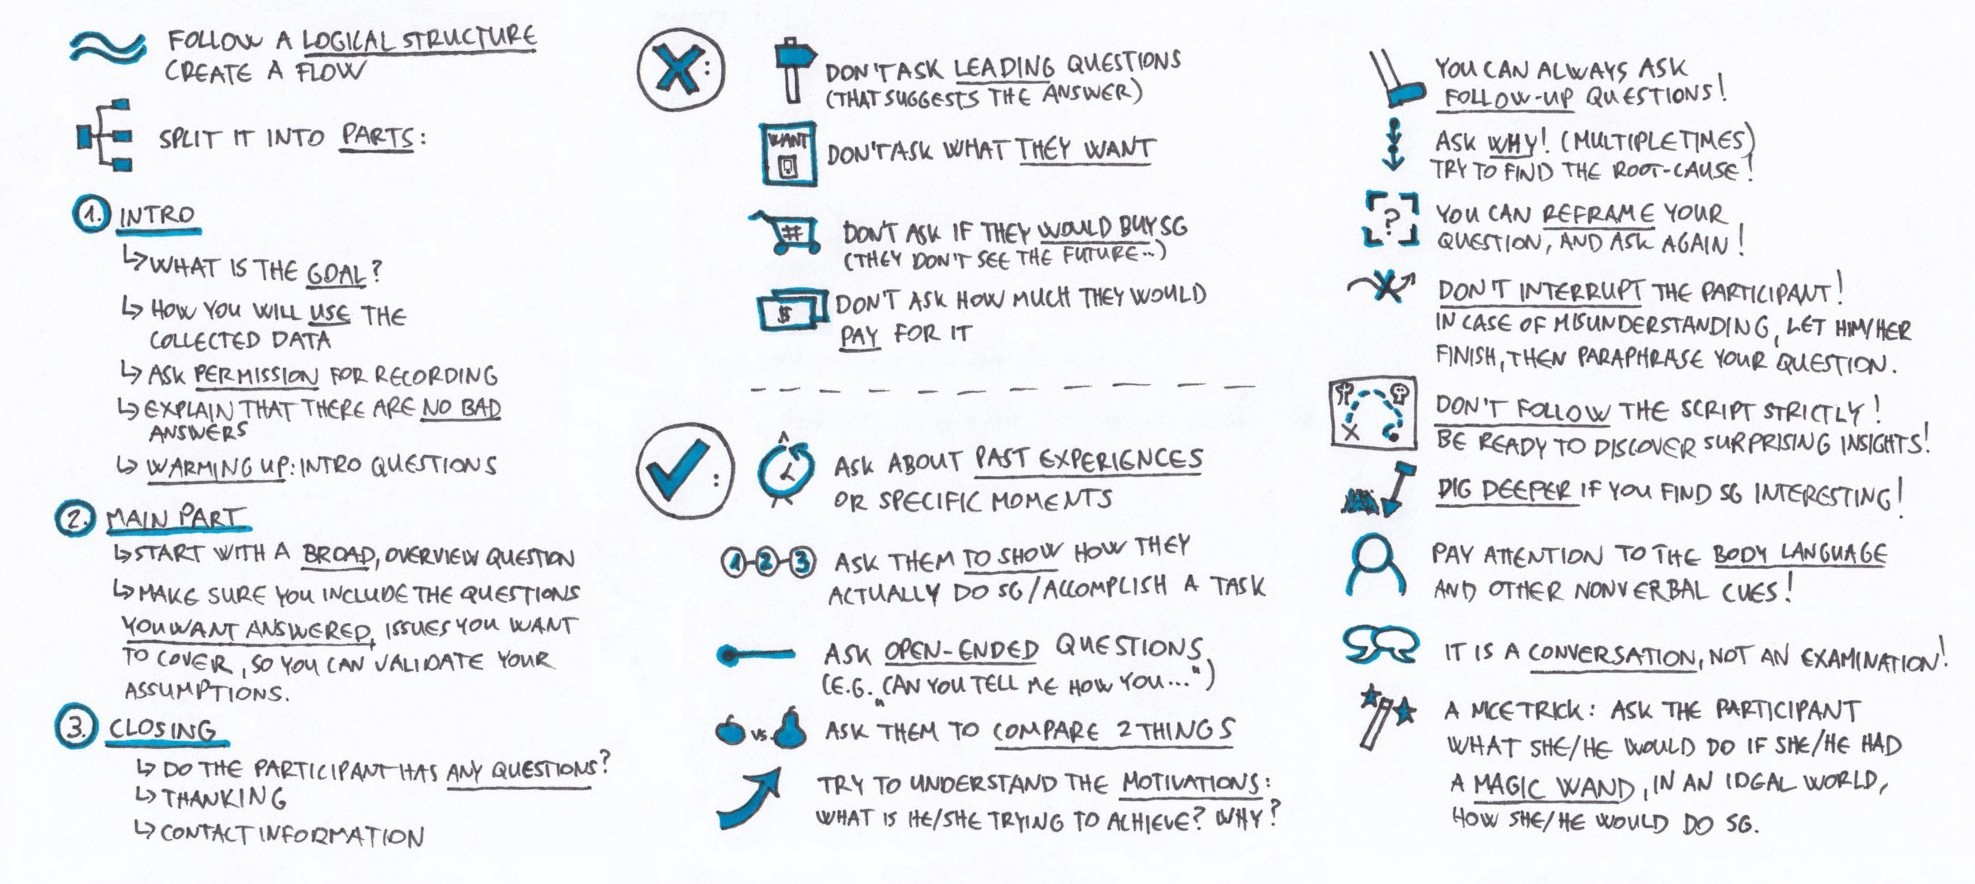 FOLLOW A LOGICAL STRUCTURE
CREATE A FLOW
SPLIT IT INTO PARTS:
1. INTRO
↳ WHAT IS THE GOAL?
↳ HOW YOU WILL USE THE
COLLECTED DATA
↳ ASK PERMISSION FOR RECORDING
↳ EXPLAIN THAT THERE ARE NO BAD
ANSWERS
↳ WARMING UP: INTRO QUESTIONS
2. MAIN PART
↳ START WITH A BROAD, OVERVIEW QUESTION
↳ MAKE SURE YOU INCLUDE THE QUESTIONS
YOU WANT ANSWERED, ISSUES YOU WANT
TO COVER, SO YOU CAN VALIDATE YOUR
ASSUMPTIONS.
3. CLOSING
↳ DO THE PARTICIPANT HAS ANY QUESTIONS?
↳ THANKING
↳ CONTACT INFORMATION
X:
DON'T ASK LEADING QUESTIONS
(THAT SUGGESTS THE ANSWER)
WANT
DON'T ASK WHAT THEY WANT
#
DON'T ASK IF THEY WOULD BUY SG
(THEY DON'T SEE THE FUTURE...)
$
DON'T ASK HOW MUCH THEY WOULD
PAY FOR IT
✓:
ASK ABOUT PAST EXPERIENCES
OR SPECIFIC MOMENTS
1-2-3
ASK THEM TO SHOW HOW THEY
ACTUALLY DO SG/ACCOMPLISH A TASK
ASK OPEN-ENDED QUESTIONS
(E.G. "CAN YOU TELL ME HOW YOU...")
VS.
ASK THEM TO COMPARE 2 THINGS
TRY TO UNDERSTAND THE MOTIVATIONS:
WHAT IS HE/SHE TRYING TO ACHIEVE? WHY?
YOU CAN ALWAYS ASK
FOLLOW-UP QUESTIONS!
ASK WHY! (MULTIPLE TIMES)
TRY TO FIND THE ROOT-CAUSE!
?
YOU CAN REFRAME YOUR
QUESTION, AND ASK AGAIN!
DON'T INTERRUPT THE PARTICIPANT!
IN CASE OF MISUNDERSTANDING, LET HIM/HER
FINISH, THEN PARAPHRASE YOUR QUESTION.
DON'T FOLLOW THE SCRIPT STRICTLY!
BE READY TO DISCOVER SURPRISING INSIGHTS!
DIG DEEPER IF YOU FIND SG INTERESTING!
PAY ATTENTION TO THE BODY LANGUAGE
AND OTHER NONVERBAL CUES!
IT IS A CONVERSATION, NOT AN EXAMINATION!
A NICE TRICK: ASK THE PARTICIPANT
WHAT SHE/HE WOULD DO IF SHE/HE HAD
A MAGIC WAND, IN AN IDEAL WORLD,
HOW SHE/HE WOULD DO SG.